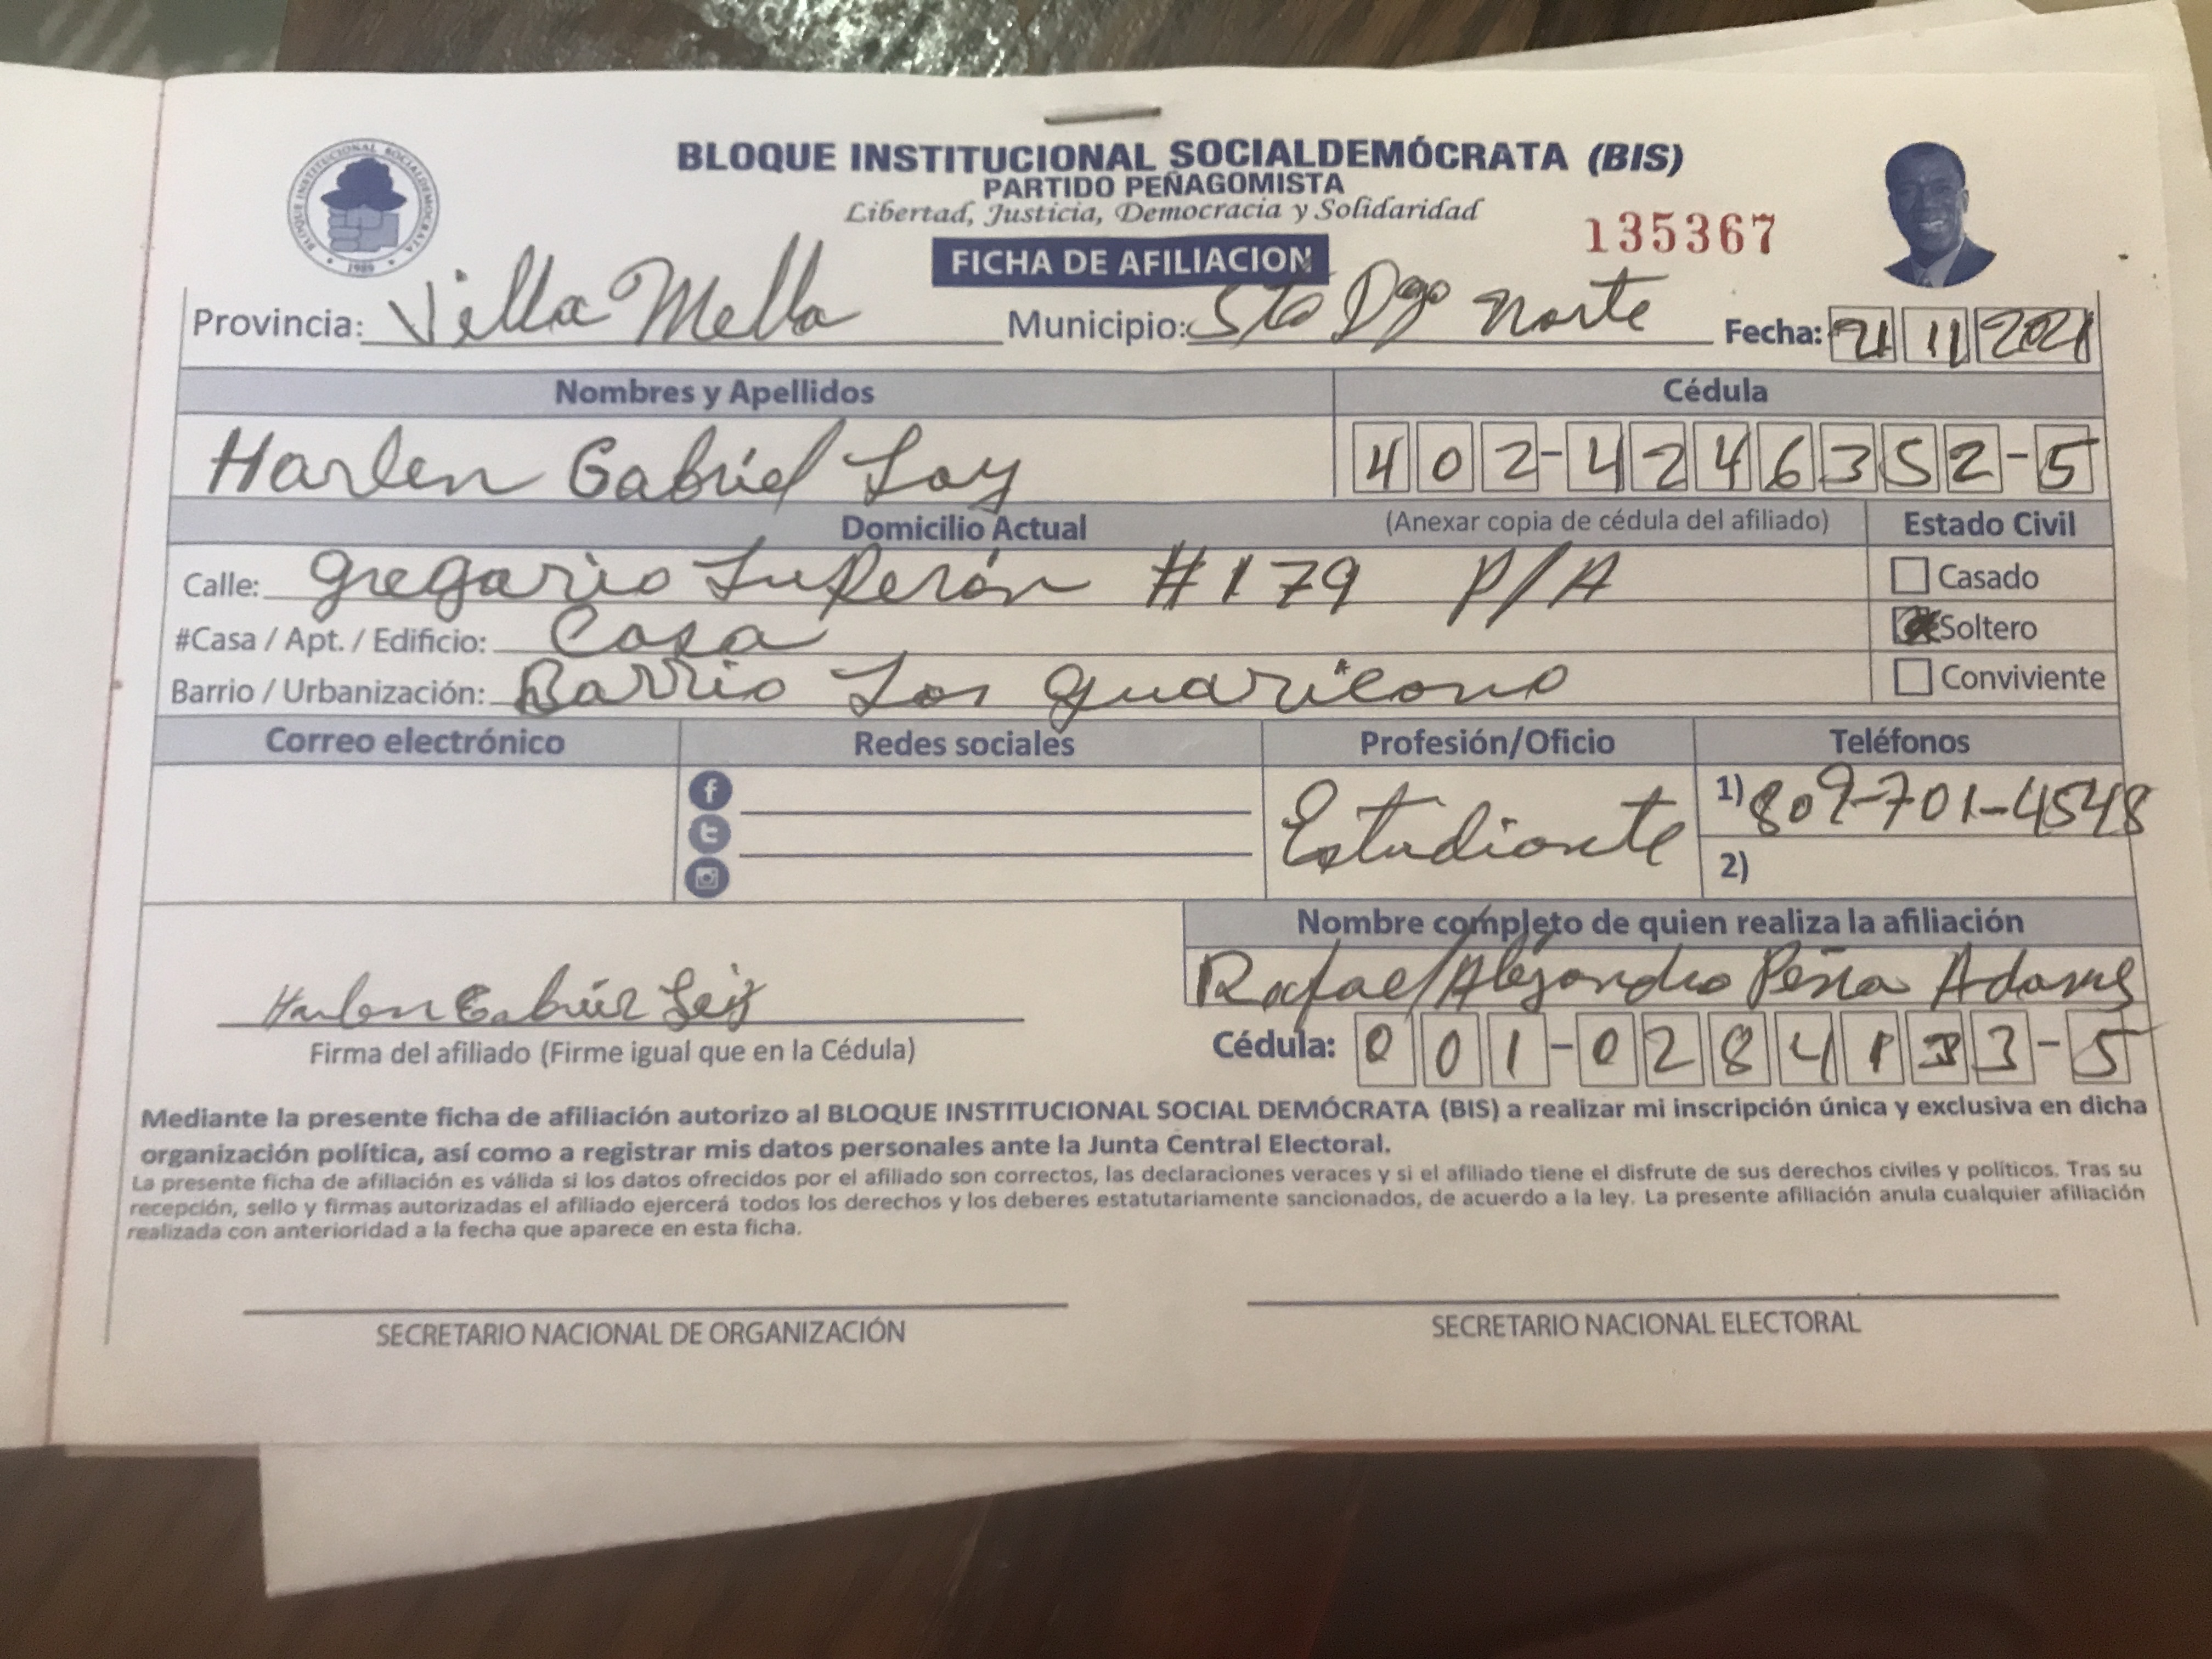 BLOQUE INSTITUCIONAL SOCIALDEMÓCRATA (BIS)
PARTIDO PEÑAGOMISTA
Libertad, Justicia, Democracia y Solidaridad
135367
FICHA DE AFILIACION
BLOQUE INSTITUCIONAL SOCIALDEMOCRATA
1989
Provincia: Villa Mella Municipio: Sto Dgo Norte Fecha: 21 11 2021
Nombres y Apellidos Cédula
Harlen Gabriel Loy 402-4246352-5
Domicilio Actual (Anexar copia de cédula del afiliado) Estado Civil
Calle: Gregorio Luperón #179 P/A Casado
#Casa / Apt. / Edificio: Casa Soltero
Barrio / Urbanización: Barrio Los Guaricano Conviviente
Correo electrónico Redes sociales Profesión/Oficio Teléfonos
Estudiante 1) 809-701-4548
2)
Nombre completo de quien realiza la afiliación
Rafael Alejandro Peña Adames
Harlen Gabriel
Cédula: 001-0284133-5
Firma del afiliado (Firme igual que en la Cédula)
Mediante la presente ficha de afiliación autorizo al BLOQUE INSTITUCIONAL SOCIAL DEMÓCRATA (BIS) a realizar mi inscripción única y exclusiva en dicha
organización política, así como a registrar mis datos personales ante la Junta Central Electoral.
La presente ficha de afiliación es válida si los datos ofrecidos por el afiliado son correctos, las declaraciones veraces y si el afiliado tiene el disfrute de sus derechos civiles y políticos. Tras su
recepción, sello y firmas autorizadas el afiliado ejercerá todos los derechos y los deberes estatutariamente sancionados, de acuerdo a la ley. La presente afiliación anula cualquier afiliación
realizada con anterioridad a la fecha que aparece en esta ficha.
SECRETARIO NACIONAL DE ORGANIZACIÓN SECRETARIO NACIONAL ELECTORAL